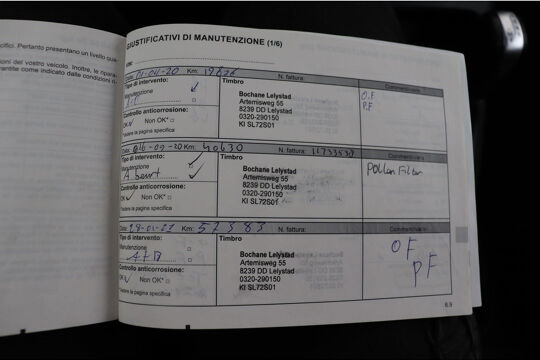 cifici. Pertanto presentano un livello qua-
ioni del vostro veicolo. Inoltre, le ripara-
rantite come indicato dalle condizioni
GIUSTIFICATIVI DI MANUTENZIONE (1/6)
VIN:
Data: 01-04-20 Km: N. fattura: Commenti/varie
Tipo di intervento: Timbro O.F
Manutenzione P.F
Bochane Lelystad
Artemisweg 55
8239 DD Lelystad
0320-290150
KI SL72S01
Controllo anticorrosione:
OK Non OK*
*Vedere la pagina specifica
Data: 16-09-20 Km: 40630 N. fattura: Commenti/varie
Tipo di intervento: Timbro Pollen Filter
Manutenzione
A beurt
Bochane Lelystad
Artemisweg 55
8239 DD Lelystad
0320-290150
KI SL72S01
Controllo anticorrosione:
OK Non OK*
*Vedere la pagina specifica
Data: Km: 57383 N. fattura: Commenti/varie
Tipo di intervento: Timbro OF
Manutenzione PF
Bochane Lelystad
Artemisweg 55
8239 DD Lelystad
0320-290150
KI SL72S01
Controllo anticorrosione:
OK Non OK*
*Vedere la pagina specifica
6.9